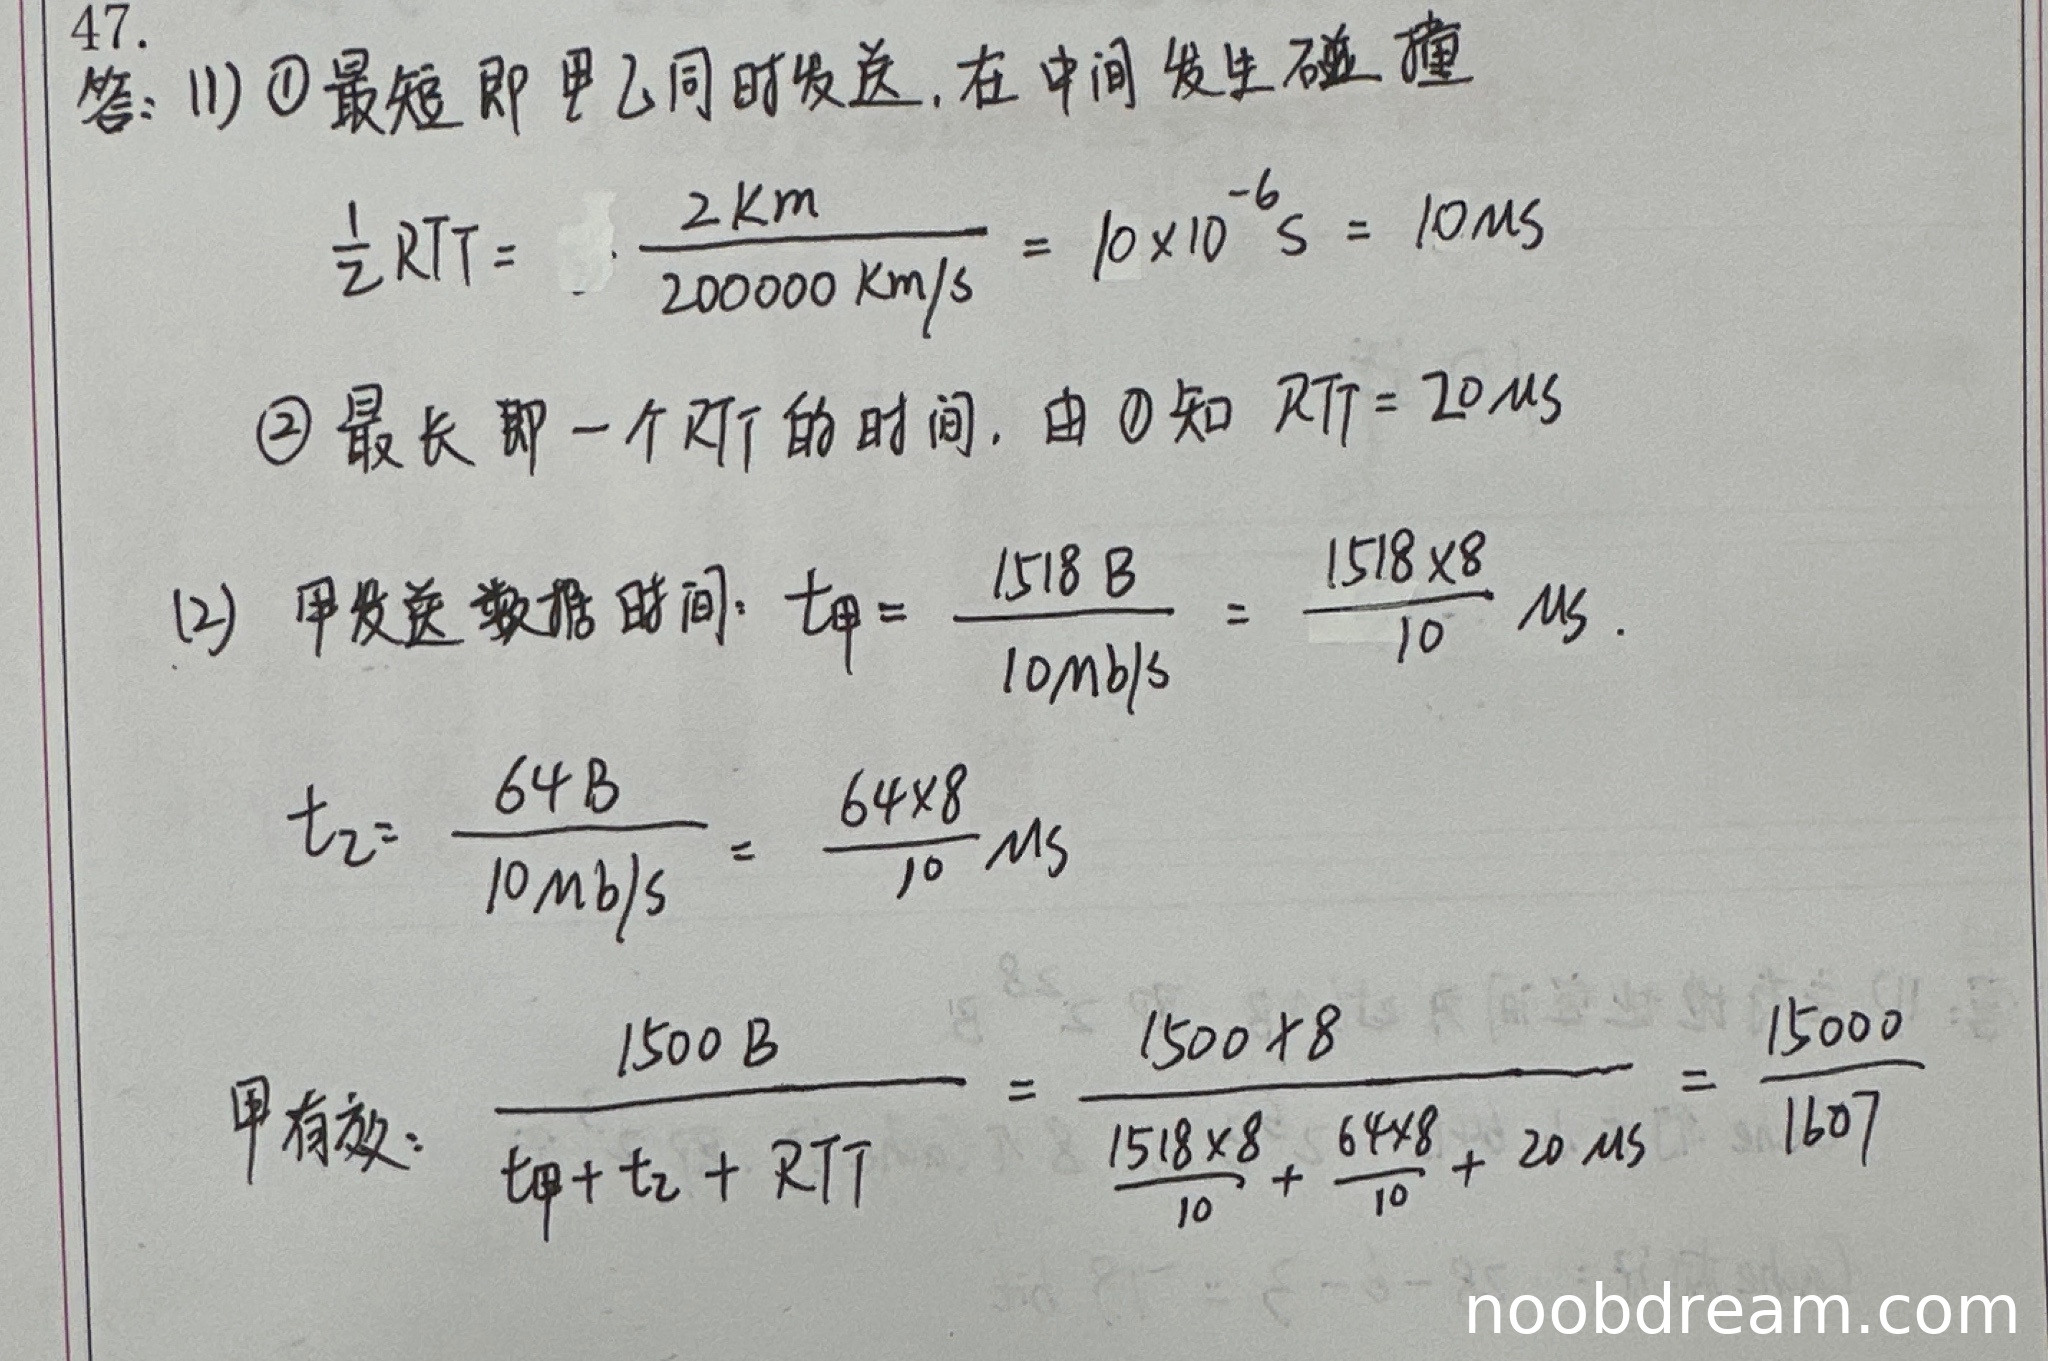 47.
答: (1) ① 最短即甲乙同时发送, 在中间发生碰撞
1/2 RTT = 2Km / 200000 Km/s = 10×10^-6 s = 10 μs
② 最长即一个RTT的时间. 由①知 RTT = 20 μs
(2) 甲发送数据时间: t甲 = 1518 B / 10Mb/s = 1518×8 / 10 μs.
t2 = 64 B / 10Mb/s = 64×8 / 10 μs
甲有效: 1500 B / (t甲 + t2 + RTT) = 1500×8 / (1518×8/10 + 64×8/10 + 20 μs) = 15000 / 1607
noobdream.com